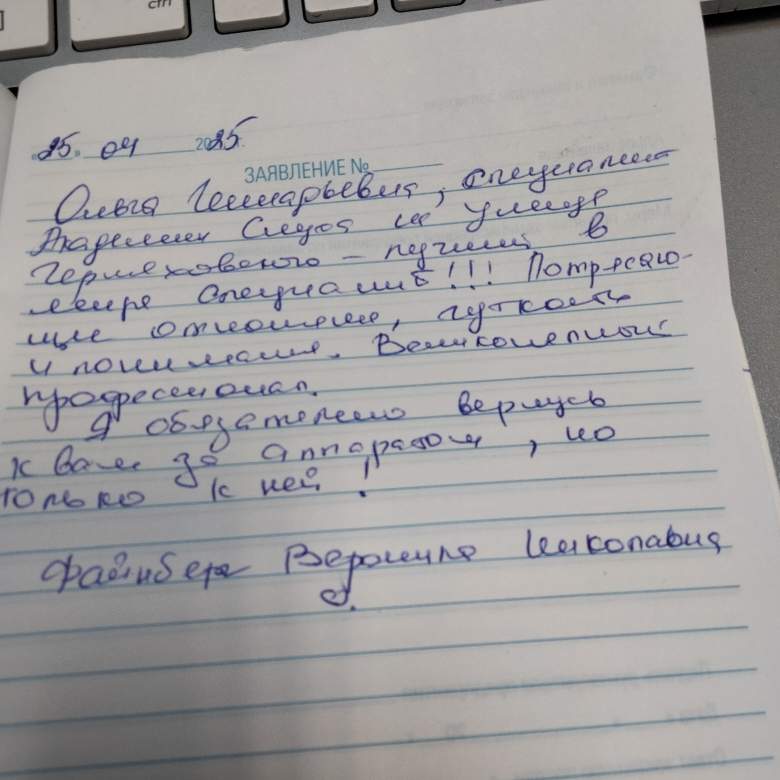 "25" 04 2025г.
ЗАЯВЛЕНИЕ №
Ольга, специалист
Академии Слуха на улице
Черняховского – лучший в
мире специалист!!! Потрясаю-
щие отношение, чуткость
и понимание. Великолепный
профессионал.
Я обязательно вернусь
к вам за аппаратом, но
только к ней!
Файнберг Вероника Николаевна